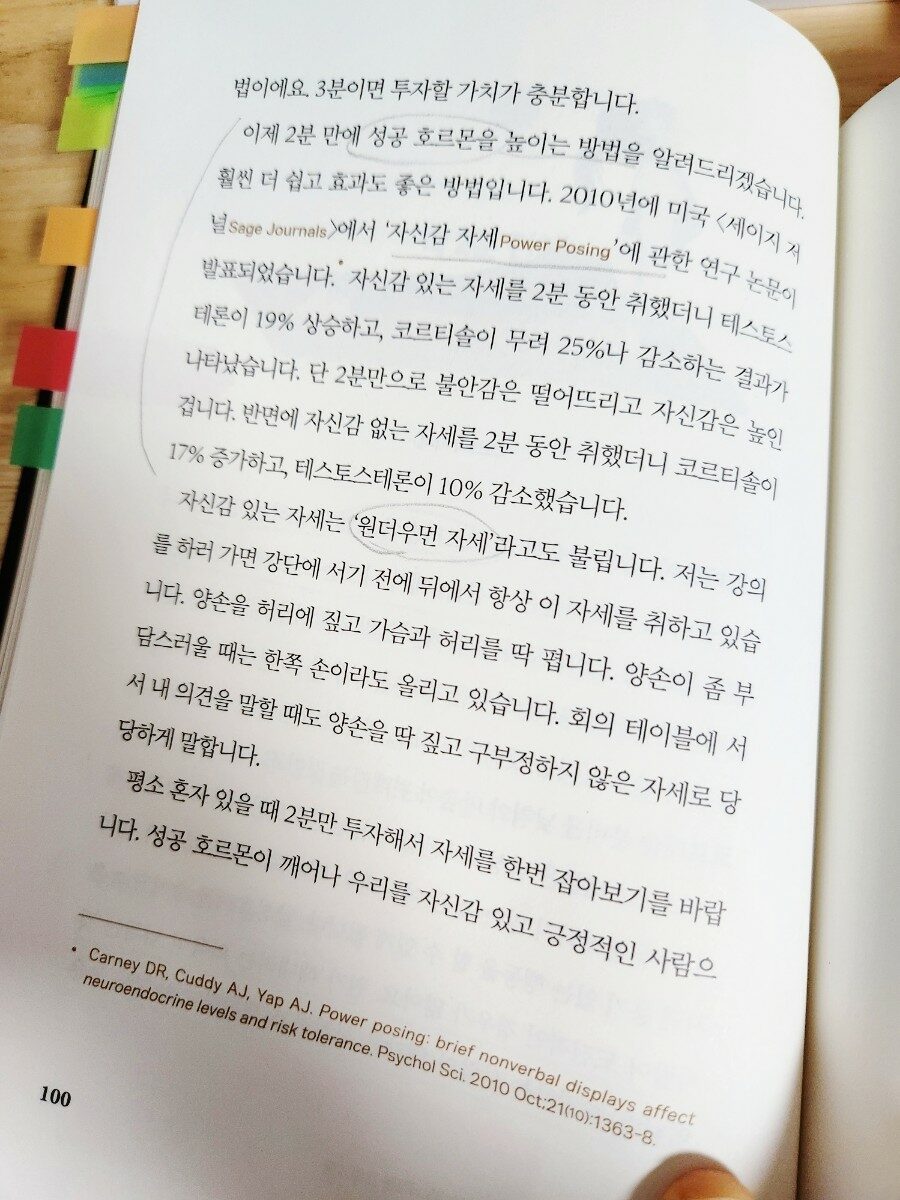 법이에요. 3분이면 투자할 가치가 충분합니다.
이제 2분 만에 성공 호르몬을 높이는 방법을 알려드리겠습니다.
훨씬 더 쉽고 효과도 좋은 방법입니다. 2010년에 미국 〈세이지 저
널Sage Journals〉에서 '자신감 자세Power Posing'에 관한 연구 논문이
발표되었습니다.• 자신감 있는 자세를 2분 동안 취했더니 테스토스
테론이 19% 상승하고, 코르티솔이 무려 25%나 감소하는 결과가
나타났습니다. 단 2분만으로 불안감은 떨어뜨리고 자신감은 높인
겁니다. 반면에 자신감 없는 자세를 2분 동안 취했더니 코르티솔이
17% 증가하고, 테스토스테론이 10% 감소했습니다.
자신감 있는 자세는 '원더우먼 자세'라고도 불립니다. 저는 강의
를 하러 가면 강단에 서기 전에 뒤에서 항상 이 자세를 취하고 있습
니다. 양손을 허리에 짚고 가슴과 허리를 딱 폅니다. 양손이 좀 부
담스러울 때는 한쪽 손이라도 올리고 있습니다. 회의 테이블에 서
서 내 의견을 말할 때도 양손을 딱 짚고 구부정하지 않은 자세로 당
당하게 말합니다.
평소 혼자 있을 때 2분만 투자해서 자세를 한번 잡아보기를 바랍
니다. 성공 호르몬이 깨어나 우리를 자신감 있고 긍정적인 사람으
• Carney DR, Cuddy AJ, Yap AJ. Power posing: brief nonverbal displays affect
neuroendocrine levels and risk tolerance. Psychol Sci. 2010 Oct;21(10):1363-8.
100